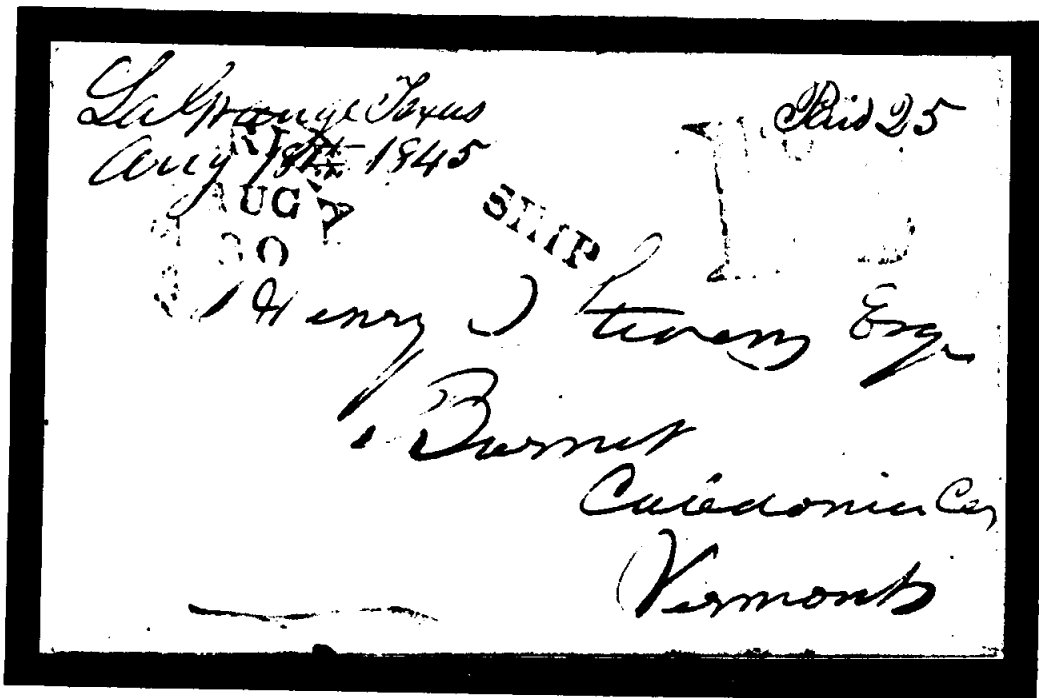 La Grange Texas
Paid 25
Aug 18th 1845
AUG
30
SHIP
Henry Stevens Esq.
Barnet
Caledonia Co,
Vermont